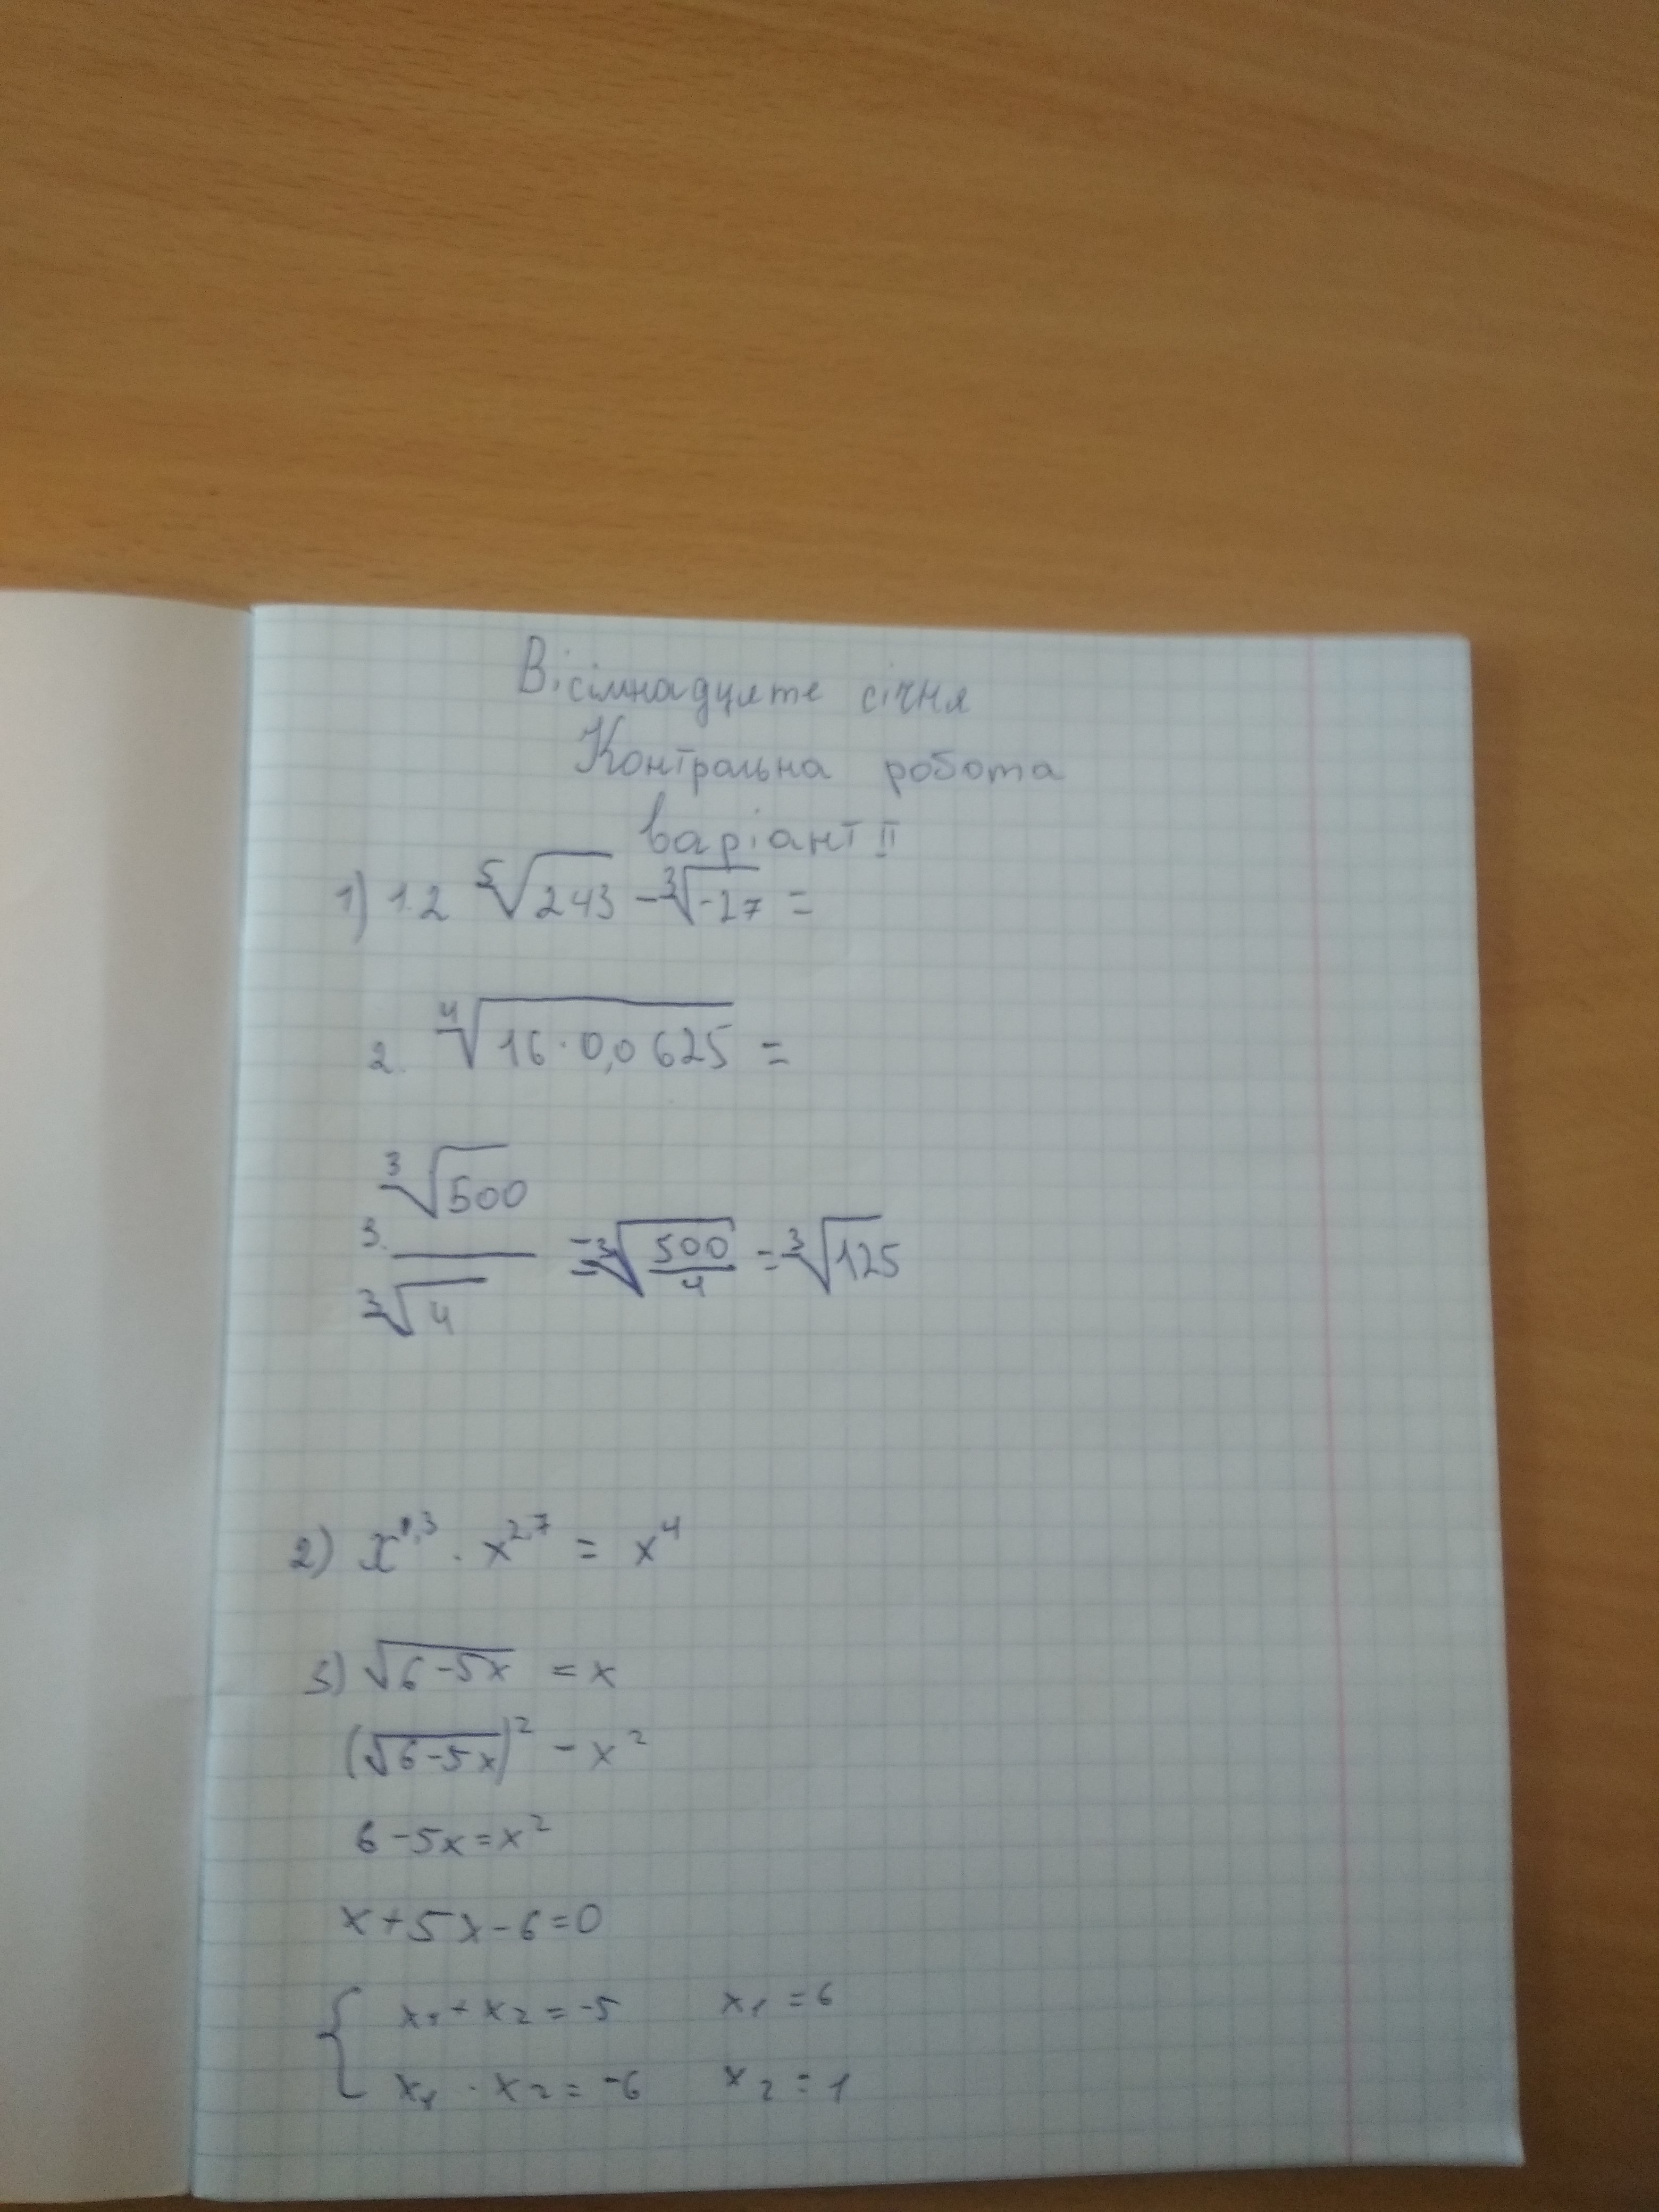 Вісімнадцяте січня
Контрольна робота
Варіант II
1) 1. 2 ⁵√243 - ³√-27 =
2. ⁴√16·0,0625 =
3. ³√500 / ³√4 = ³√500/4 = ³√125
2) x^1,3 · x^2,7 = x^4
3) √6-5x = x
(√6-5x)² = x²
6-5x=x²
x+5x-6=0
{ x₁+x₂=-5 x₁=6
x₁·x₂=-6 x₂=1